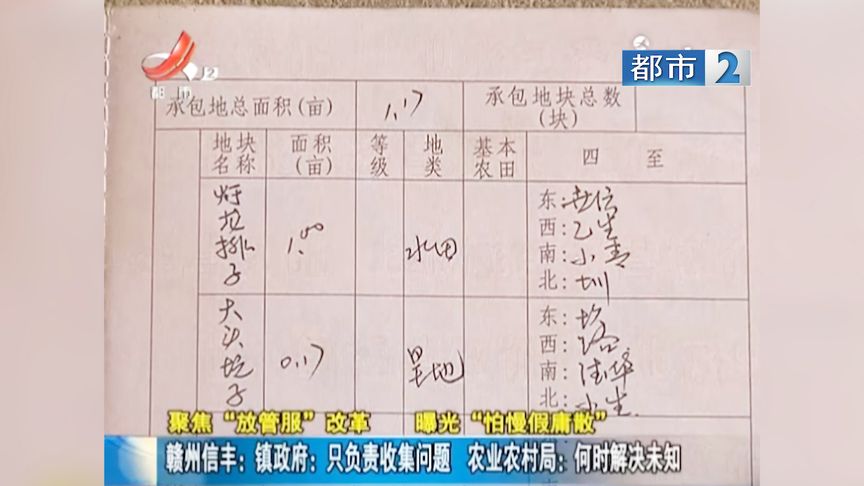 都市2
承包地总面积(亩) 1.17 承包地块总数(块)
地块名称 面积(亩) 等级 地类 基本农田 四至
1.00 水田
东:
西:乙生
南:小青
北:圳
大头坑子 0.17 旱地
东:坎
西:路
南:
北:小生
聚焦“放管服”改革 曝光“怕慢假庸散”
赣州信丰:镇政府:只负责收集问题 农业农村局:何时解决未知